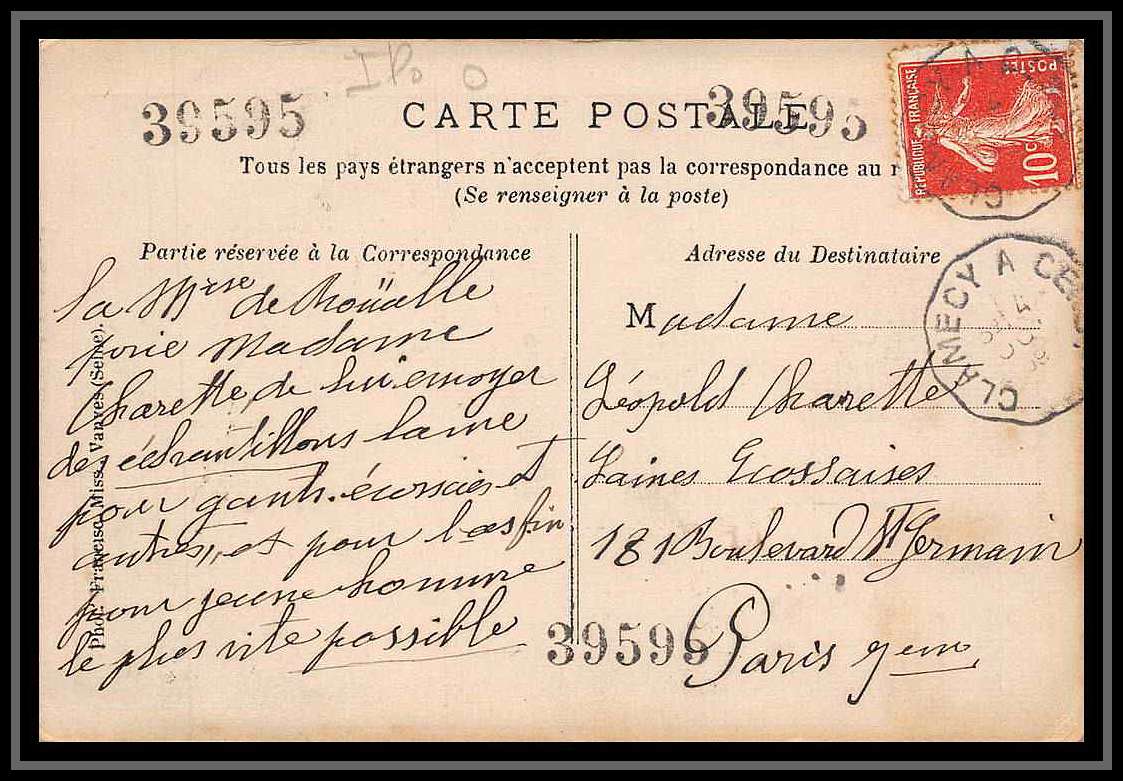 39595
CARTE POSTALE
39595
Tous les pays étrangers n'acceptent pas la correspondance au
(Se renseigner à la poste)
RÉPUBLIQUE FRANÇAISE
POSTES
10c
Partie réservée à la Correspondance
la Mrse de Rouälle
prie Madame
Charette de lui envoyer
des échantillons laine
pour gants. écossais et
autres,, et pour bas fin
pour jeune homme
le plus vite possible
Phot. Francise Miss., Vanves (Seine).
Adresse du Destinataire
Madame
Léopold Charette
Laines Ecossaises
181 Boulevard St Germain
Paris 7em
39595
CLAMECY A